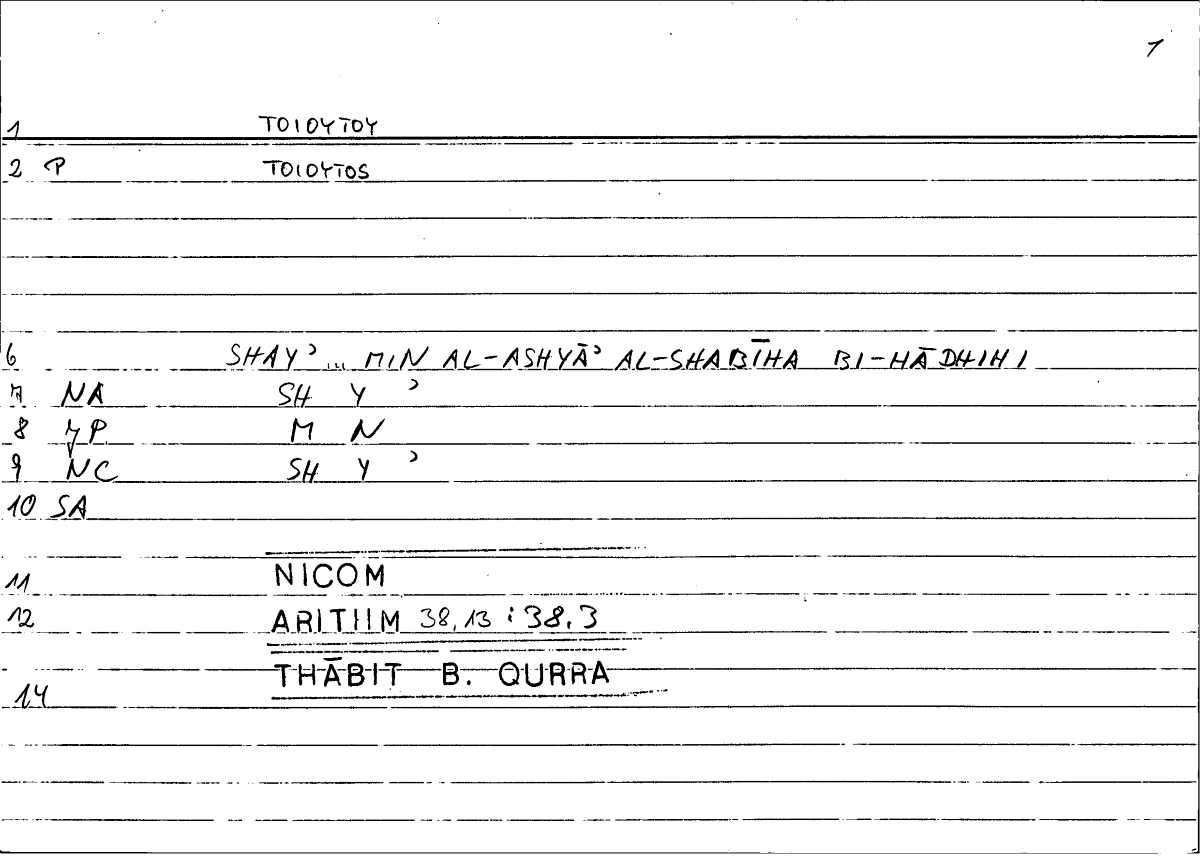 1
1 TOIOYTOY
2 P TOIOYTOS
6 SHAYʾ ... MIN AL-ASHYĀʾ AL-SHABĪHA BI-HĀDHIHI
7 NA SH Y ʾ
8 JP M N
9 NC SH Y ʾ
10 SA
11 NICOM
12 ARITHM 38,13 : 38.3
THĀBIT B. QURRA
14